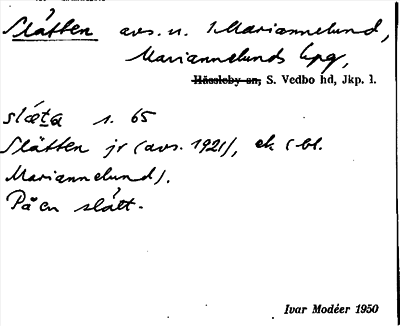 Slätten avs. n. Mariannelund,
Mariannelunds kpg,
Hässleby sn, S. Vedbo hd, Jkp. l.
slæ̀ta s. 65
Slätten jr (avs. 1921), ek (bl.
Mariannelund).
På en slätt.
Ivar Modéer 1950